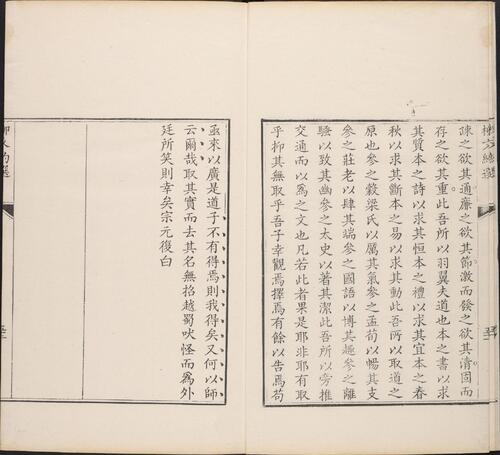 疎之欲其通廉之欲其節激而發之欲其清固而
存之欲其重此吾所以羽翼夫道也本之書以求
其質本之詩以求其恒本之禮以求其宜本之春
秋以求其斷本之易以求其動此吾所以取道之
原也參之穀梁氏以厲其氣參之孟荀以暢其支
參之莊老以肆其端參之國語以博其趣參之離
騷以致其幽參之太史以著其潔此吾所以旁推
交通而以為之文也凡若此者果是耶非耶有取
乎抑其無取乎吾子幸觀焉擇焉有餘以告焉苟
亟來以廣是道子不有得焉則我得矣又何以師
云爾哉取其實而去其名無招越蜀吠怪而為外
廷所笑則幸矣宗元復白